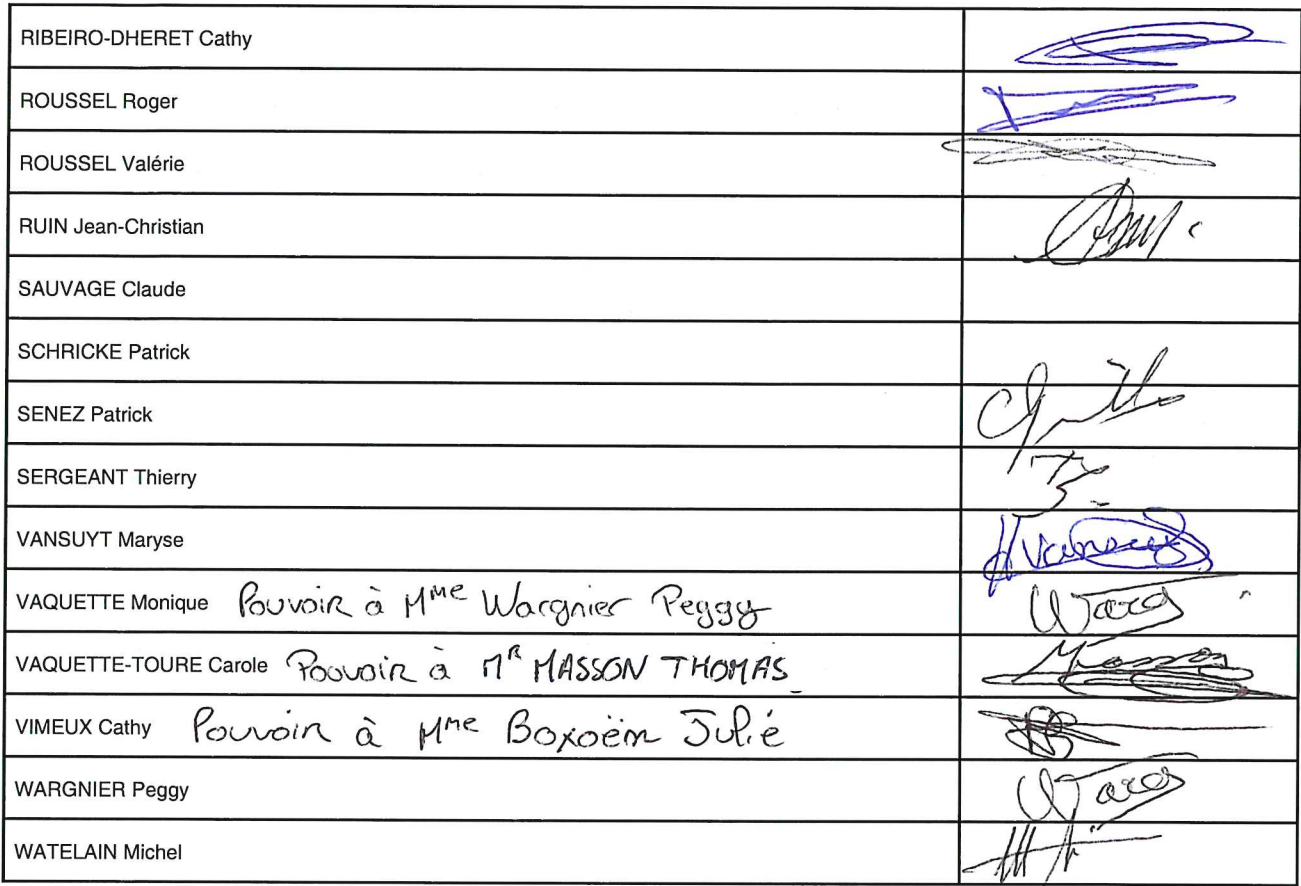 RIBEIRO-DHERET Cathy
ROUSSEL Roger
ROUSSEL Valérie
RUIN Jean-Christian
SAUVAGE Claude
SCHRICKE Patrick
SENEZ Patrick
SERGEANT Thierry
VANSUYT Maryse
VAQUETTE Monique Pouvoir à Mme Wargnier Peggy
VAQUETTE-TOURE Carole Pouvoir à MR MASSON THOMAS
Masson
VIMEUX Cathy Pouvoir à Mme Boxoën Julié
WARGNIER Peggy
WATELAIN Michel